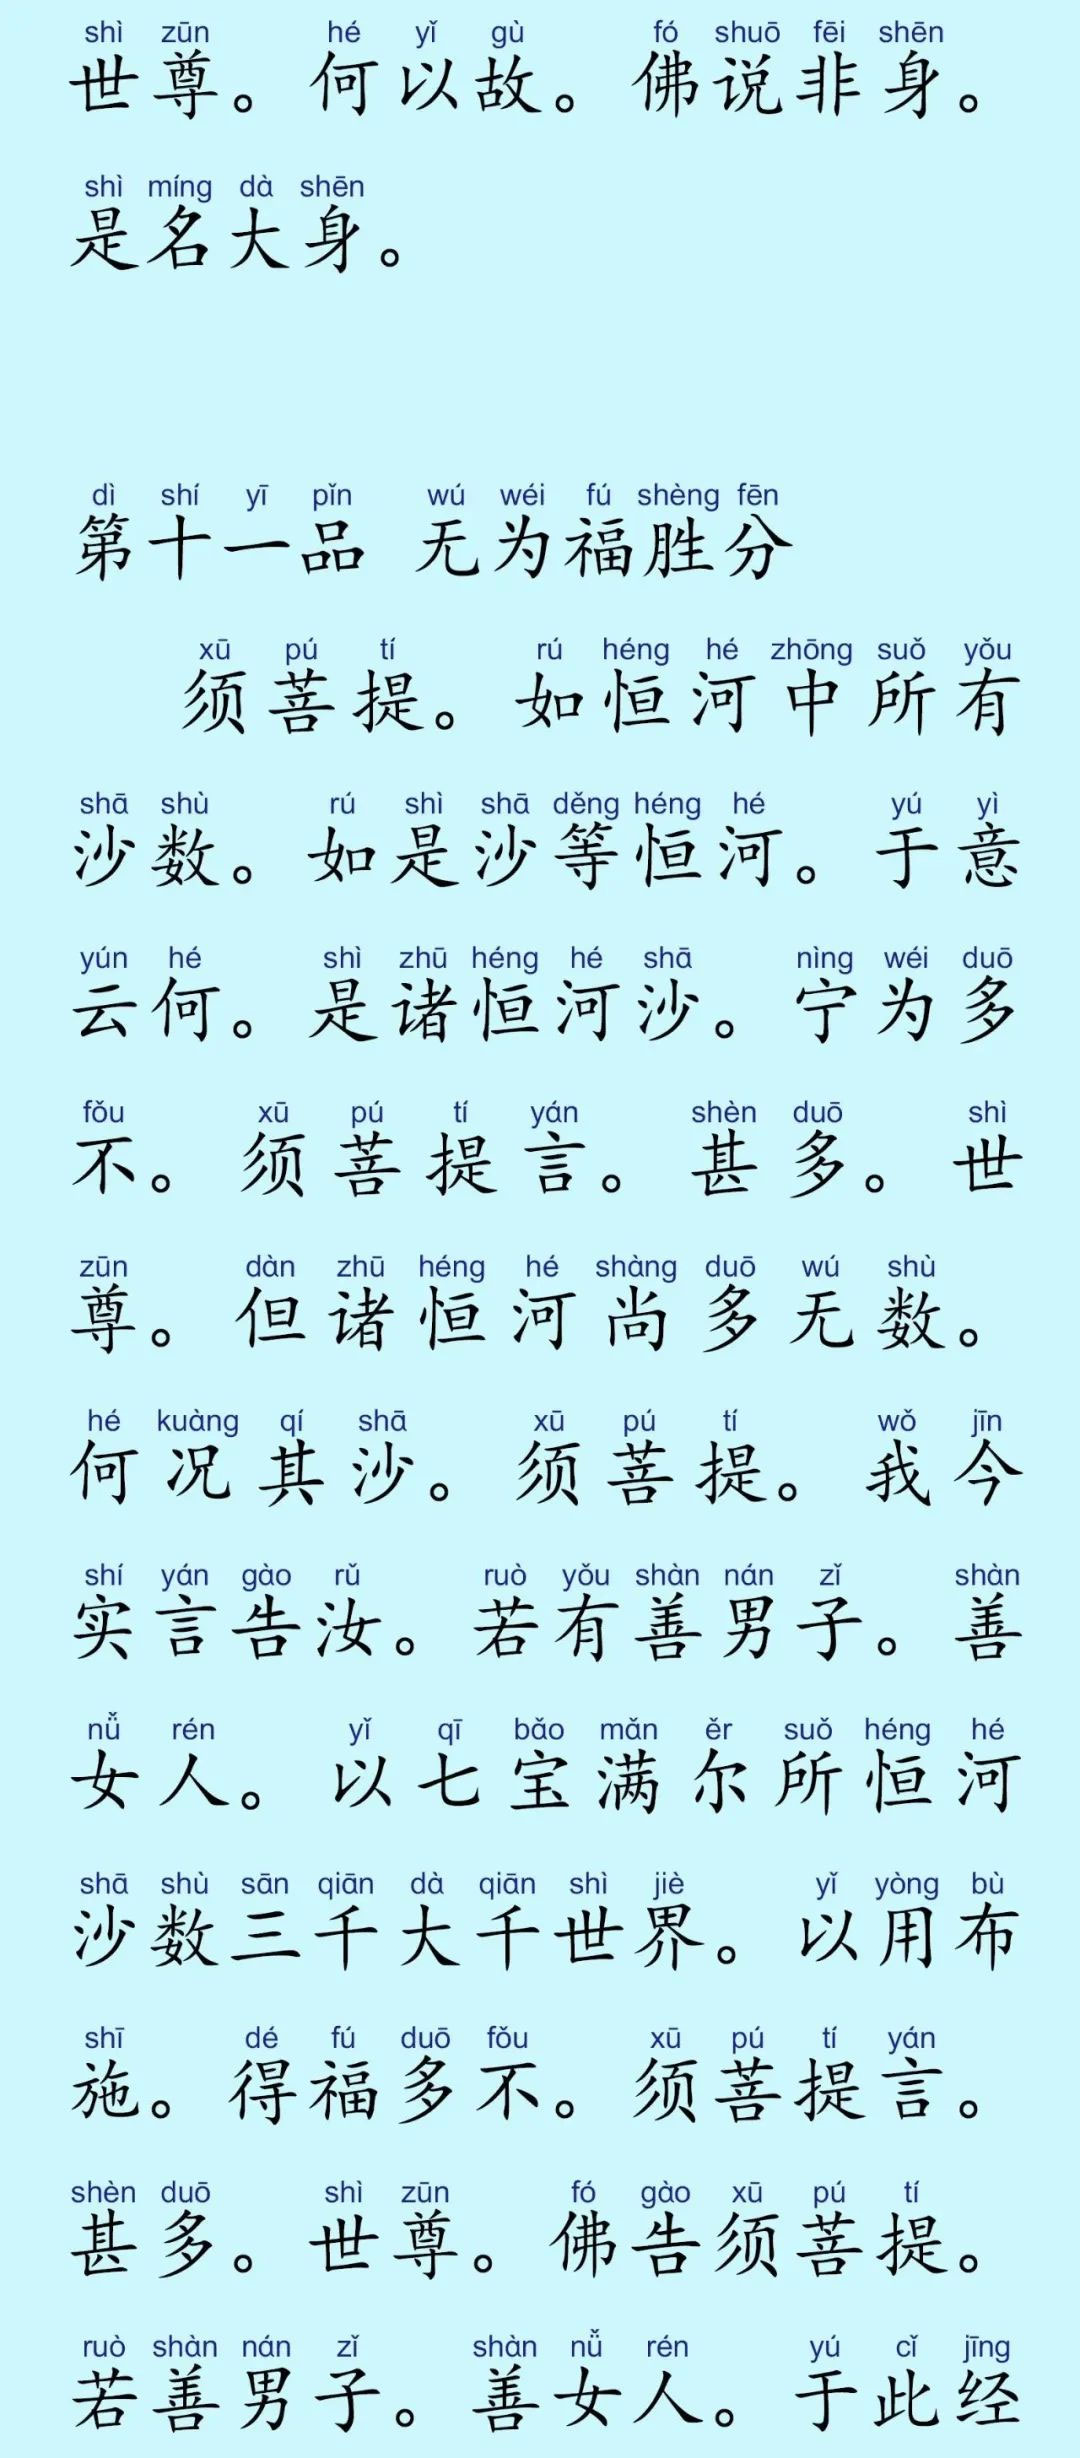 shì zūn hé yǐ gù fó shuō fēi shēn
世尊。何以故。佛说非身。
shì míng dà shēn
是名大身。
dì shí yī pǐn wú wéi fú shèng fēn
第十一品 无为福胜分
xū pú tí rú héng hé zhōng suǒ yǒu
须菩提。如恒河中所有
shā shù rú shì shā děng héng hé yú yì
沙数。如是沙等恒河。于意
yún hé shì zhū héng hé shā nìng wéi duō
云何。是诸恒河沙。宁为多
fǒu xū pú tí yán shèn duō shì
不。须菩提言。甚多。世
zūn dàn zhū héng hé shàng duō wú shù
尊。但诸恒河尚多无数。
hé kuàng qí shā xū pú tí wǒ jīn
何况其沙。须菩提。我今
shí yán gào rǔ ruò yǒu shàn nán zǐ shàn
实言告汝。若有善男子。善
nǚ rén yǐ qī bǎo mǎn ěr suǒ héng hé
女人。以七宝满尔所恒河
shā shù sān qiān dà qiān shì jiè yǐ yòng bù
沙数三千大千世界。以用布
shī dé fú duō fǒu xū pú tí yán
施。得福多不。须菩提言。
shèn duō shì zūn fó gào xū pú tí
甚多。世尊。佛告须菩提。
ruò shàn nán zǐ shàn nǚ rén yú cǐ jīng
若善男子。善女人。于此经